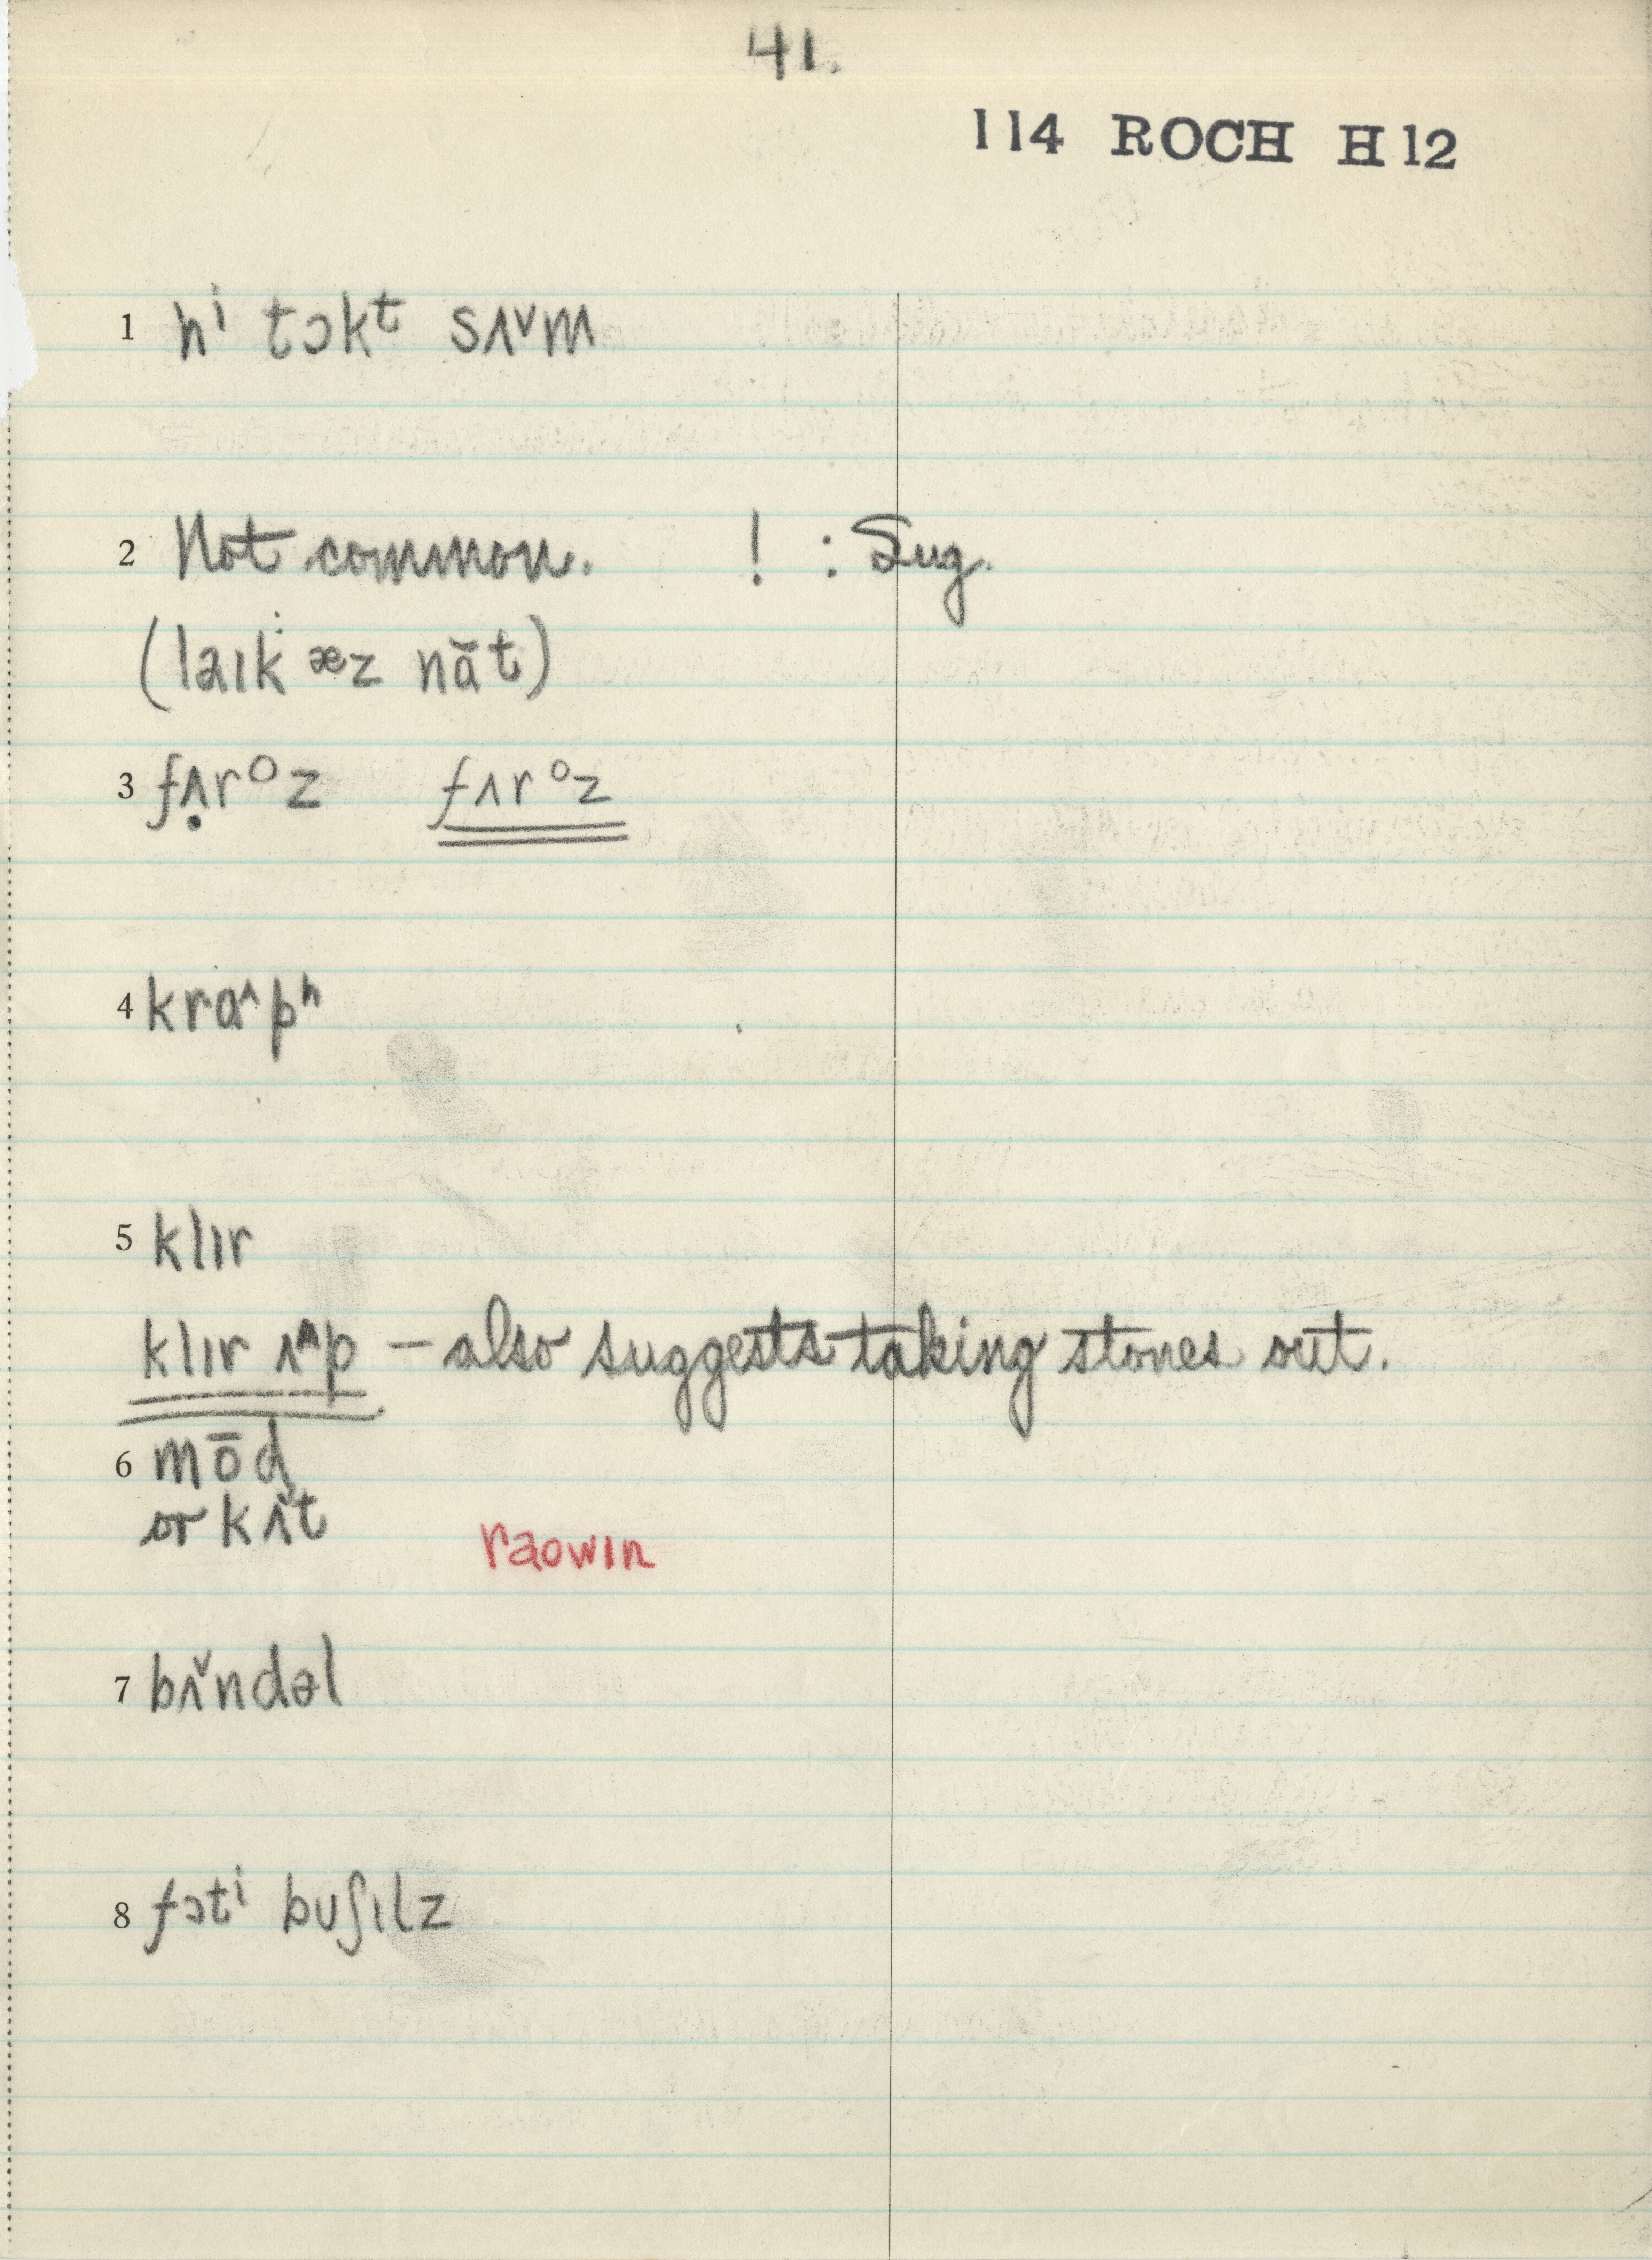 41.
114 ROCH H12
1 hⁱ tɔkᵗ sʌ˅m
2 Not common. ! : Sug.
(laık æz nāt)
3 fʌ̣rᵒz fʌrᵒz
4 krɑ˄pʰ
5 klır
klır ʌ˄p – also suggests taking stones out.
6 mōd
or kʌ̌t
raowın
7 bʌ̌ndəl
8 fɔtⁱ buʃılz